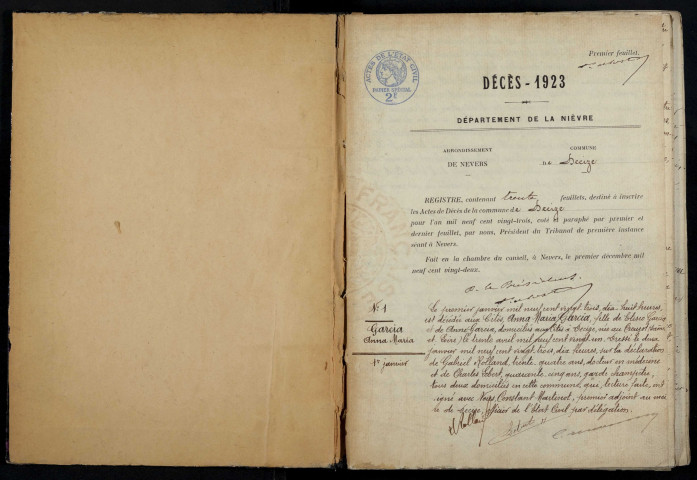 Premier feuillet.
ACTES DE L'ETAT CIVIL
PAPIER SPÉCIAL
2F
DÉCÈS - 1923
DÉPARTEMENT DE LA NIÈVRE
ARRONDISSEMENT
DE NEVERS
COMMUNE
DE Decize
REGISTRE, contenant trente feuillets, destiné à inscrire
les Actes de Décès de la commune de Decize
pour l'an mil neuf cent vingt-trois, coté et paraphé par premier et
dernier feuillet, par nous, Président du Tribunal de première instance
séant à Nevers.
Fait en la chambre du conseil, à Nevers, le premier décembre mil
neuf cent vingt-deux.
Le Président
N° 1
Garcia
Anna Maria
1er janvier
Le premier janvier mil neuf cent vingt trois, dix huit heures,
est décédée aux Cités, Anna Maria Garcia, fille de Garcia
et de Anna Garcia, domiciliés aux Cités à Decize, née au Creusot, Saône
et Loire, le trente avril mil neuf cent vingt un. Dressé le deux
janvier mil neuf cent vingt trois, dix heures, sur la déclaration
de Gabriel Rolland, trente quatre ans, docteur en médecine
et de Charles quarante cinq ans, garde champêtre,
tous deux domiciliés en cette commune, qui, lecture faite, ont
signé avec Nous, Constant Martinet, premier adjoint au mai
re de Decize, officier de l'Etat Civil par délégation.